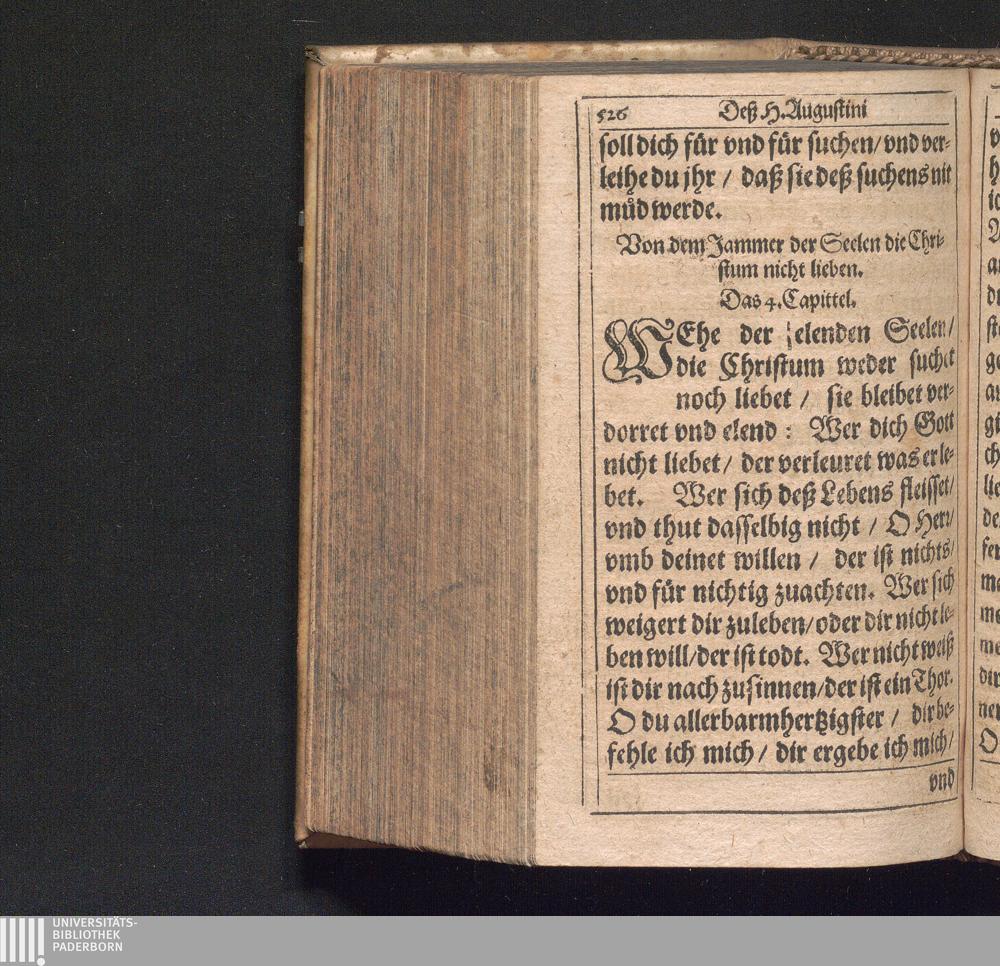 526 Deß H. Augustini
soll dich für vnd für suchen/ vnd ver-
leihe du jhr / daß sie deß suchens nit
müd werde.
Von dem Jammer der Seelen die Chri-
stum nicht lieben.
Das 4. Capittel.
WEhe der elenden Seelen/
die Christum weder suchet
noch liebet / sie bleibet ver-
dorret vnd elend : Wer dich Gott
nicht liebet/ der verleuret was er le-
bet. Wer sich deß Lebens fleisset/
vnd thut dasselbig nicht / O Herr/
vmb deinet willen / der ist nichts/
vnd für nichtig zuachten. Wer sich
weigert dir zuleben/ oder dir nicht le-
ben will/ der ist todt. Wer nicht weiß
ist dir nach zusinnen/ der ist ein Thor.
O du allerbarmhertzigster / dir be-
fehle ich mich / dir ergebe ich mich/
vnd
UNIVERSITÄTS-
BIBLIOTHEK
PADERBORN